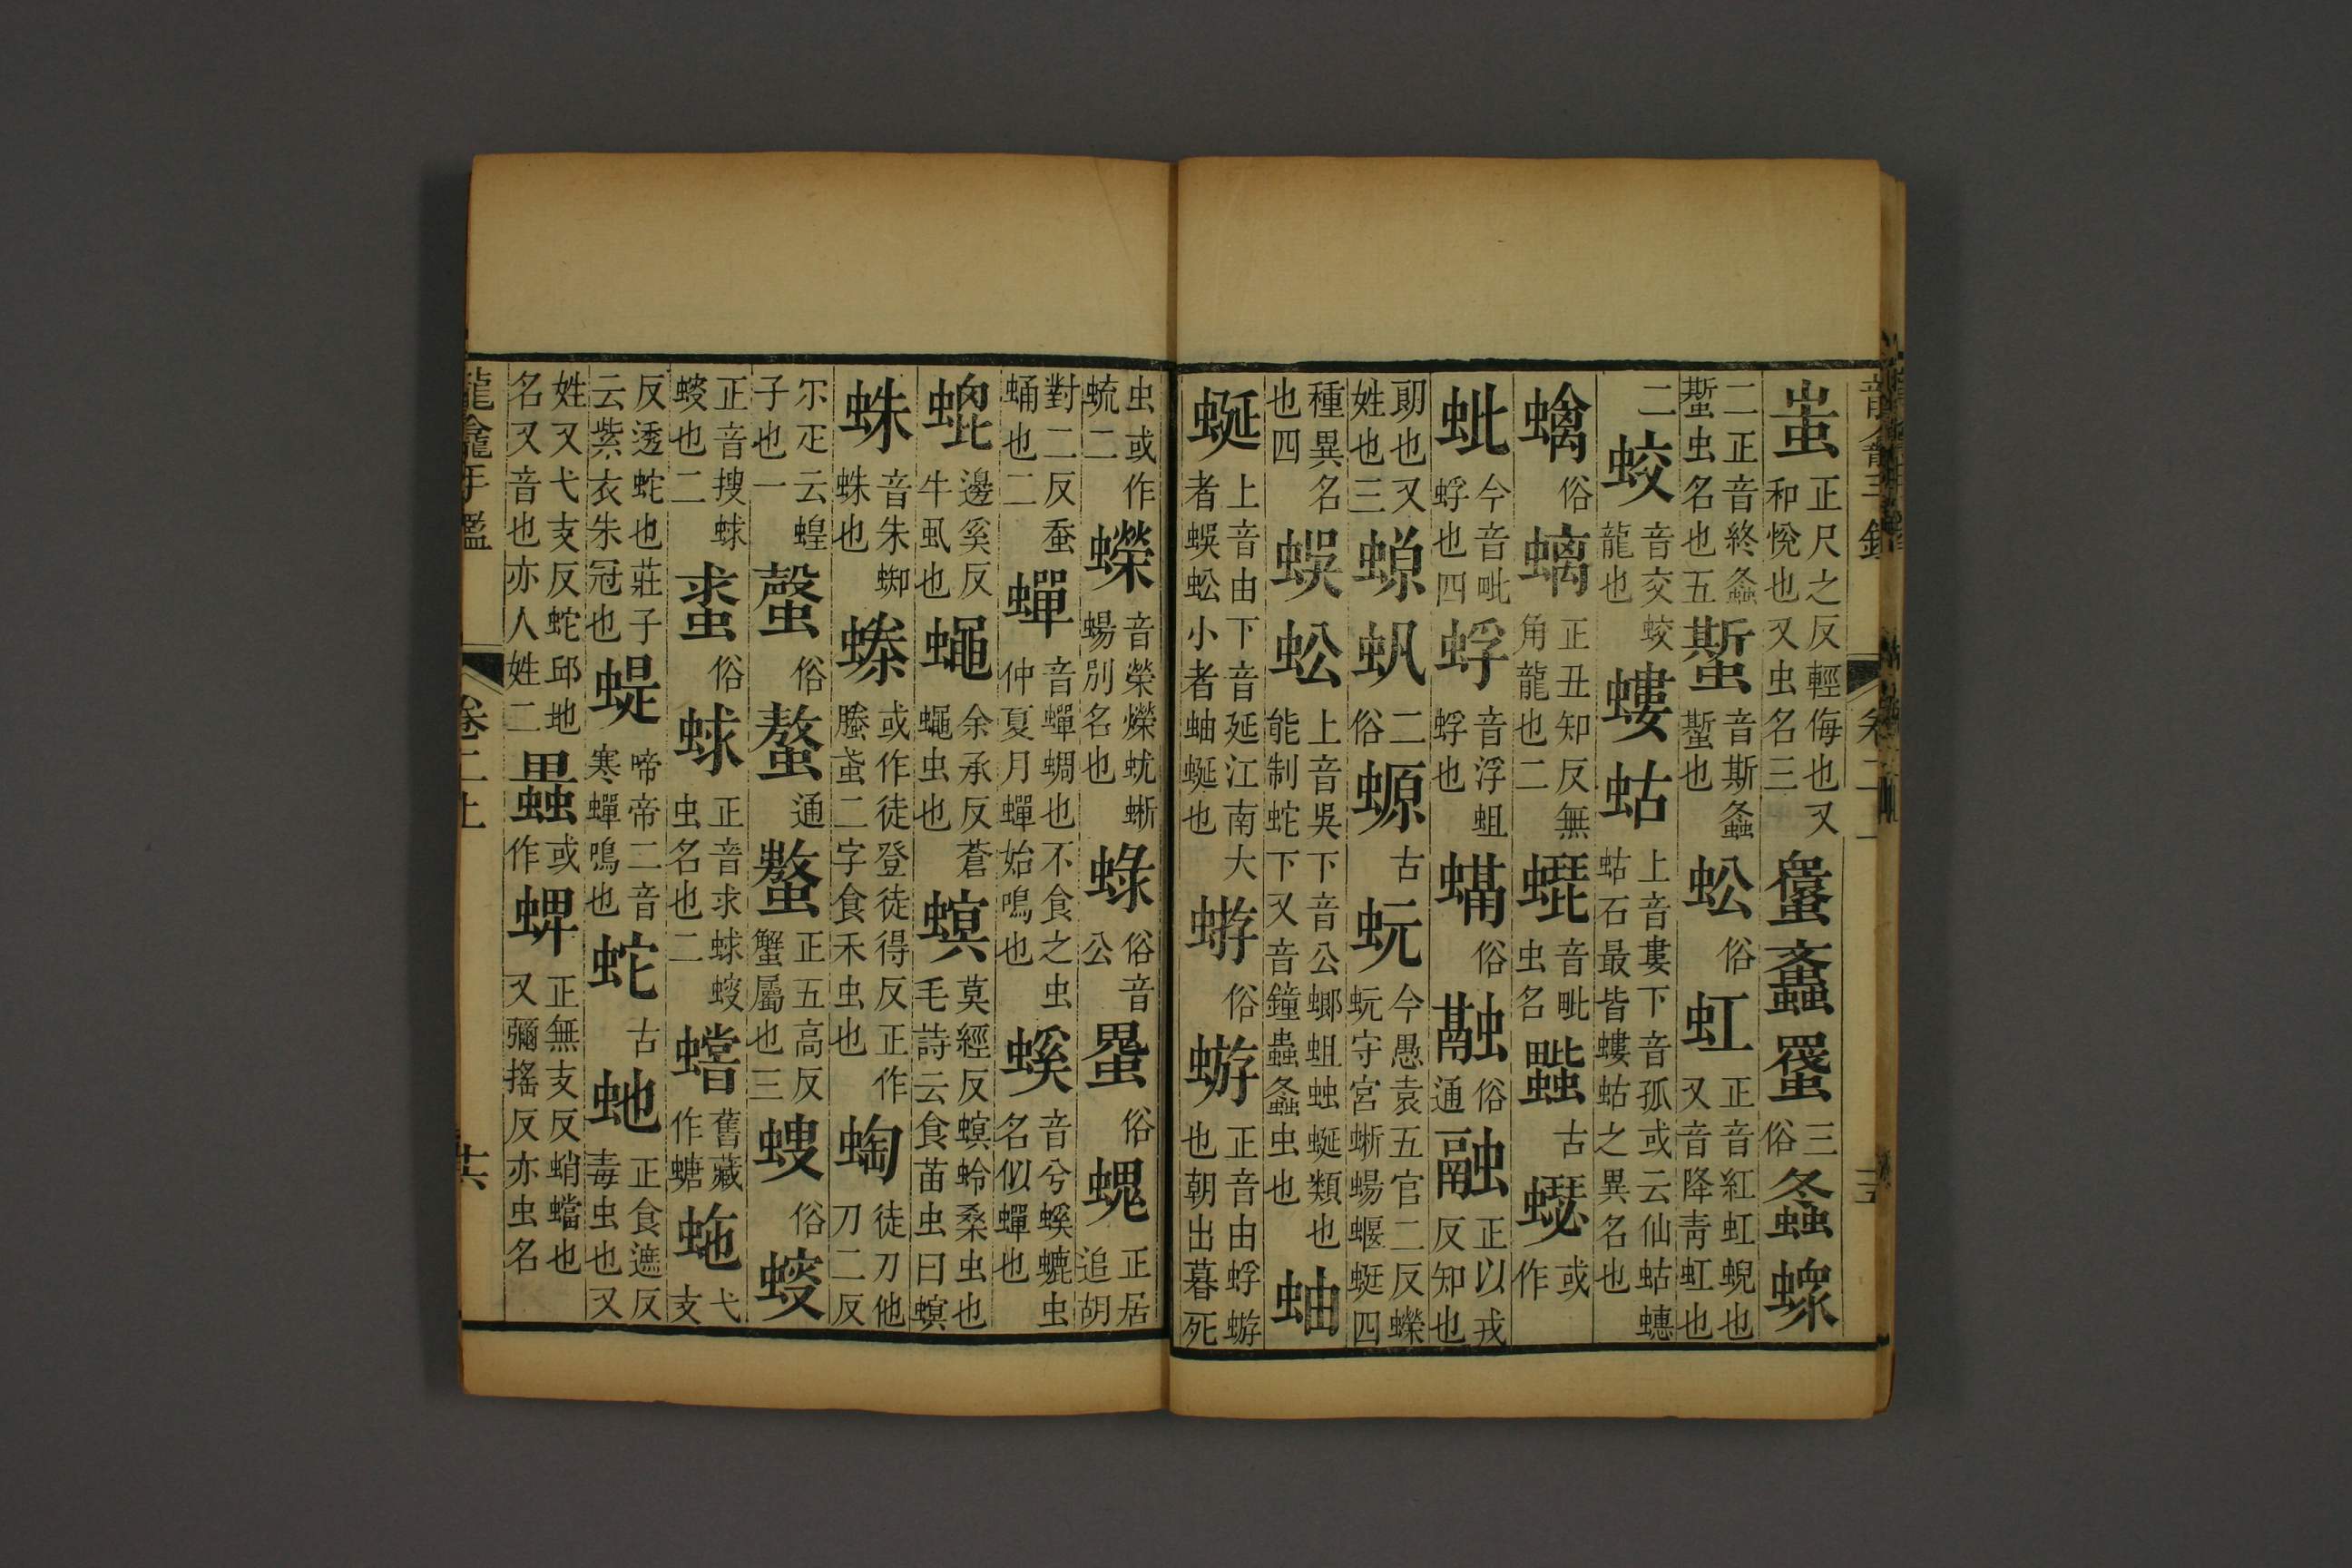 蚩正尺之反輕侮也又和悅也又虫名三𧑄螽𧒒三俗螽䗥
二正音終螽蟴虫名也五蟴音斯螽蟴也蚣俗虹正音紅虹蜺也又音降青虹也
二蛟音交蛟龍也螻蛄上音婁下音孤或云仙蛄蟪蛄石最皆螻蛄之異名也
螭俗螭正丑知反無角龍也二螕音毗虫名蠶古蟚或作
蚍今音毗蜉也四蜉音浮蛆蜉也螎俗螎俗通融正以戎反知也
朗也又姓也三螈䖠二俗螈古蚖今愚袁五官二反蠑蚖守宮蜥蜴蝘蜓四
種異名也四蜈蚣上音吳下音公蝍蛆䖦蜒類也能制蛇下又音鐘蟲螽虫也蚰
蜒上音由下音延江南大者蜈蚣小者蚰蜒也蝣俗蝣正音由蜉蝣也朝出暮死
虫或作蚞二蠑音榮蠑蚖蜥蜴別名也螑俗音公蝁俗螝正居追胡
對二反蚕蛹也二蟬音蟬蜩也不食之虫仲夏月蟬始鳴也螇音兮螇螰虫名似蟬也
蜫邊奚反牛虱也蠅余承反蒼蠅虫也螟莫經反螟蛉桑虫也毛詩云食苗虫曰螟
蛛音朱蜘蛛也螣或作徒登徒得反正作螣蟘二字食禾虫也蜪徒刀他刀二反
尔疋云蝗子也一螯俗螯通螯正五高反蟹屬也三螋俗螋
正音搜蛷螋也二蛷俗蛷正音求蛷螋虫名也二蟷舊藏作螗䖢弋支
反透蛇也莊子云紫衣朱冠也蝭啼帝二音寒蟬鳴也蛇古虵正食遮反毒虫也又
姓又弋支反蛇邱地名又音也亦人姓二𧕿或作蜱正無支反蛸蟷也又彌搖反亦虫名
龍龕手鑑
卷二上
十六